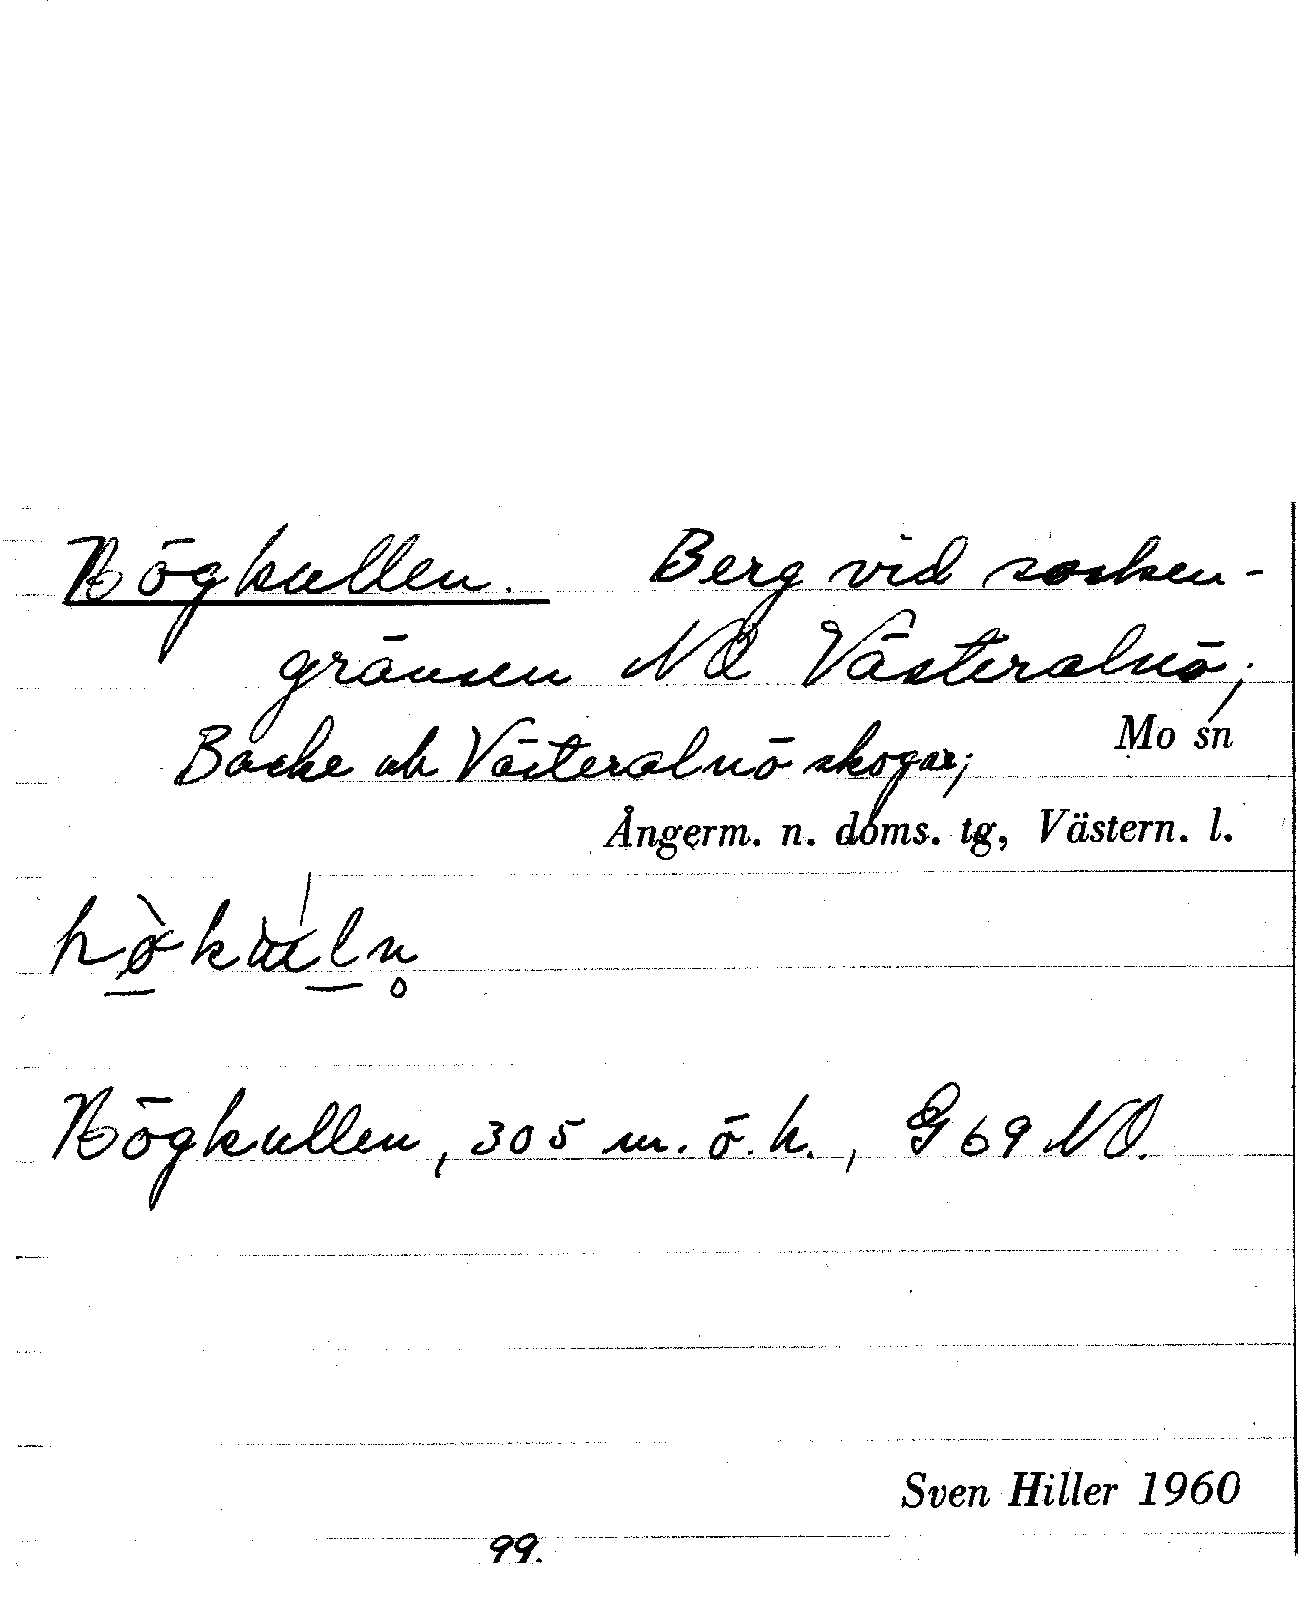 Högkullen. Berg vid socken-
gränsen NO Västeralnö;
Mo sn
Backe och Västeralnö skogar;
Ångerm. n. doms. tg, Västern. l.
Högkullen, 305 m. ö. h., G 69 NO.
Sven Hiller 1960
99.